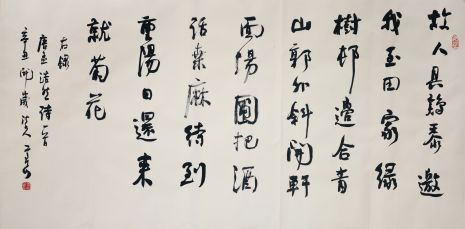 故人具鷄黍邀
我至田家綠
樹邨邊合青
山郭外斜開軒
面場圃把酒
話桑麻待到
重陽日還來
就菊花
右錄
唐孟浩然詩一首
辛丑開歲